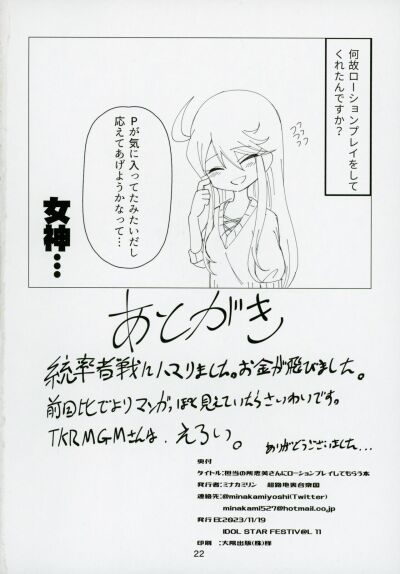 何故ローションプレイをして
くれたんですか？
フフフフ
Pが気に入ってたみたいだし
応えてあげようかなって…
女神…
あとがき
統率者戦にハマりました。お金が飛びました。
前回比でよりマンガっぽく見えていたらさいわいです。
TKRMGMさんは、えろい。
ありがとうございました...
奥付
タイトル：担当の所恵美さんにローションプレイしてもらう本
発行者：ミナカミリン　超路地裏台帝国
連絡先：@minakamiyoshi(Twitter)
minakami527@hotmail.co.jp
発行日：2023/11/19
IDOL STAR FESTIV@L 11
印刷　：大陽出版(株)様
22